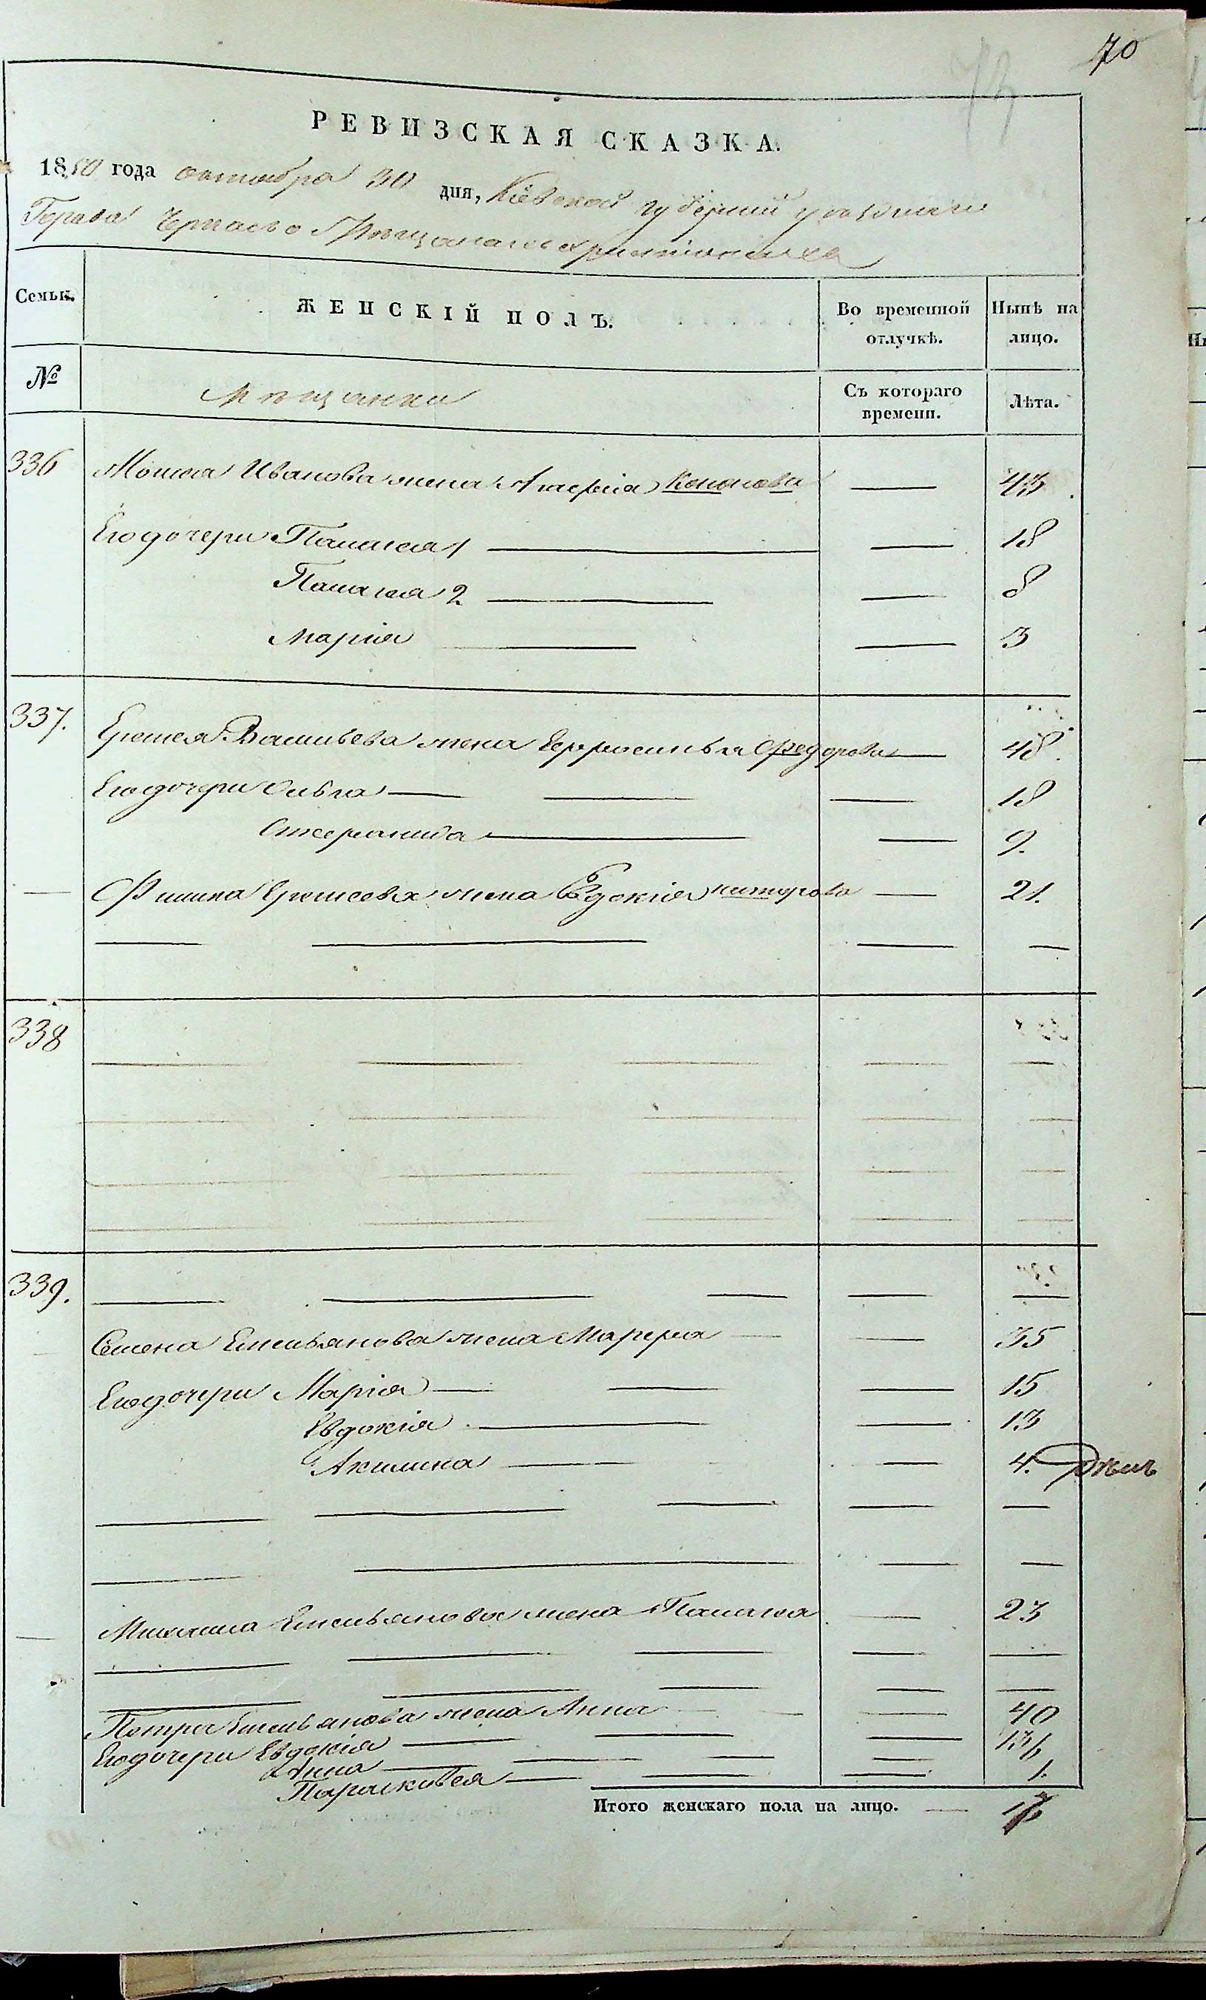 70
73
РЕВИЗСКАЯ СКАЗКА.
1850 года октября 30 дня, Кіевской губерніи уезднаго
Города
Семьи. ЖЕНСКІЙ ПОЛЪ. Во временной отлучкѣ. Нынѣ на лицо.
№ Мѣщанки Съ котораго времени. Лѣта.
336 Мойсея Иванова жена Агафія Кононова — 43.
Его дочери Палагея 1 — 18
Палагея 2 — 8
Марія — 3
337. Евсея Васильева жена Ефросинья Федорова — 48.
Его дочери Ольга — 18
Стефанида — 9.
Филипа Евсеева жена Евдокія — 21.
338
339.
Семена Емельянова жена Марфа — 35
Его дочери Марія — 15
Евдокія — 13
Акилина — 4.
Михаила Емельянова жена Палагея — 23
Петра Емельянова жена Анна — 40
Его дочери Евдокія — 13
Анна —
Парасковея — 1.
Итого женскаго пола на лицо. — 17